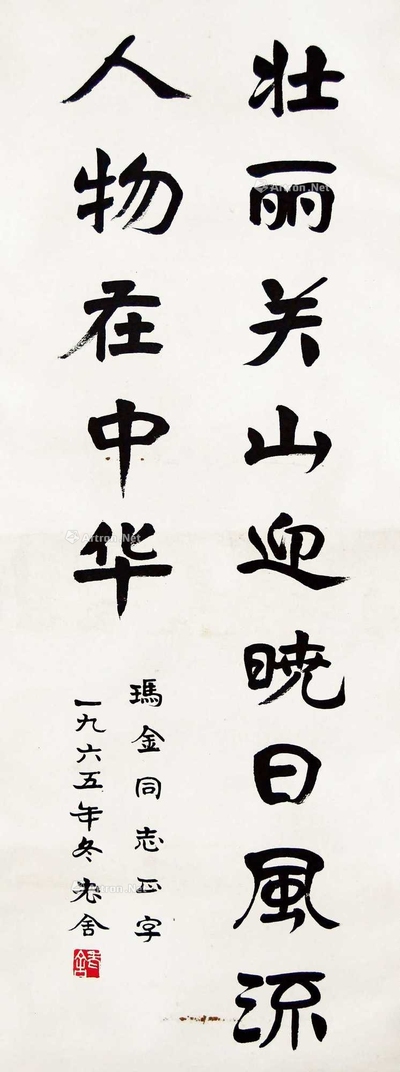 壮丽关山迎晓日風流
人物在中华
瑪金同志正字
一九六五年冬老舍
老舍
Artron.Net
Artron.Net
Artron.Net
Artron.Net